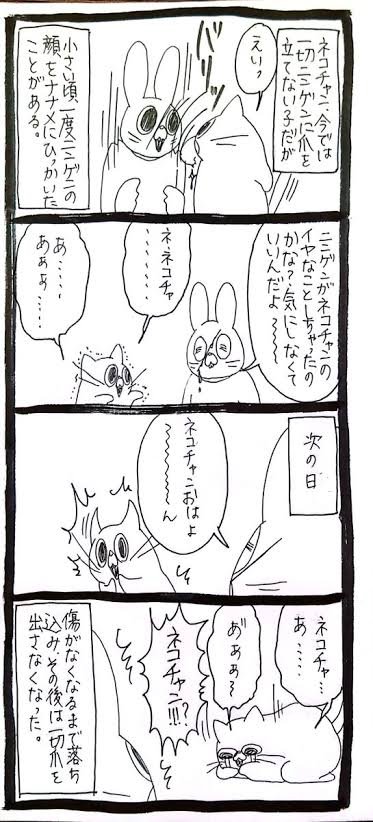 ネコチャン、今では
一切ニンゲンに爪を
立てない子だが
えいっ
小さい頃一度ニンゲンの
顔をナナメにひっかいた
ことがある。
ニンゲンがネコチャンの
イヤなことしちゃったの
かな?気にしなくて
いいんだよ〜〜〜
ネネコチャ
……
あ……
あぁぁ……
次の日
ネコチャンおはよ
〜〜〜ん
ネコチャ…
あ……
あ゛ぁぁ〜
ネコチャン!!!?
傷がなくなるまで落ち
込みその後は一切爪を
出さなくなった。